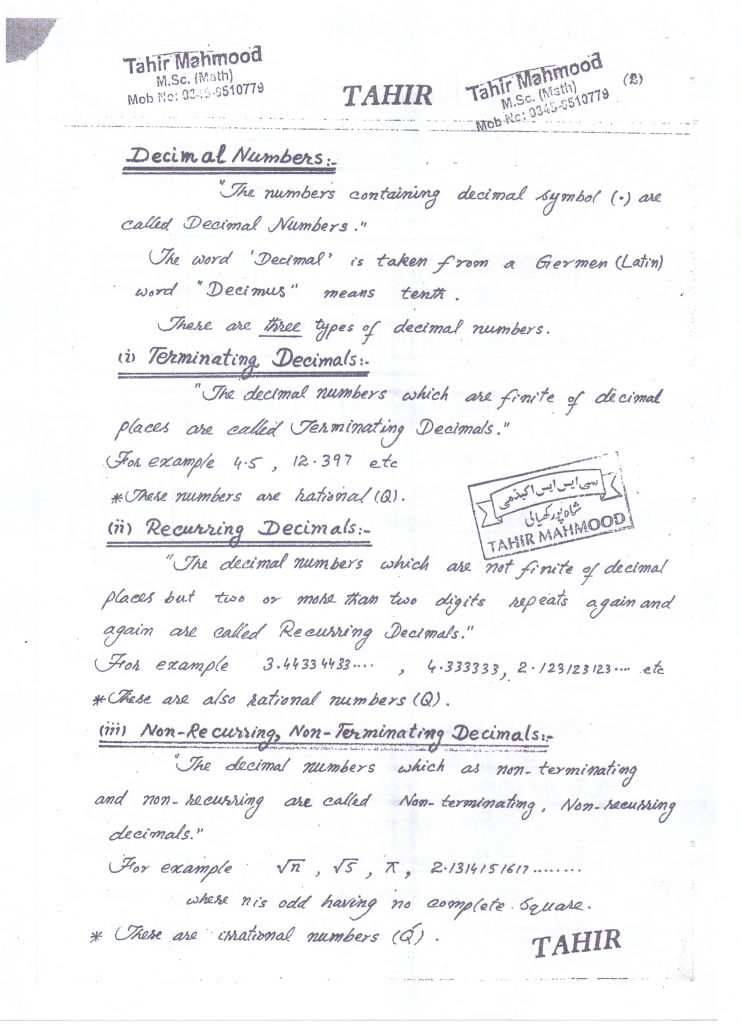 Tahir Mahmood
M.Sc. (Math)
Mob No: 0345-6510779
TAHIR
Tahir Mahmood
M.Sc. (Math)
Mob No: 0345-6510779
(2)
Decimal Numbers:-
"The numbers containing decimal symbol (.) are
called Decimal Numbers."
The word 'Decimal' is taken from a Germen (Latin)
word "Decimus" means tenth.
There are three types of decimal numbers.
(i) Terminating Decimals:-
"The decimal numbers which are finite of decimal
places are called Terminating Decimals."
For example 4.5 , 12.397 etc
*These numbers are rational (Q).
سی ایس ایس اکیڈمی
شاہ پور کھیالی
TAHIR MAHMOOD
(ii) Recurring Decimals:-
"The decimal numbers which are not finite of decimal
places but two or more than two digits repeats again and
again are called Recurring Decimals."
For example 3.44334433.... , 4.333333, 2.123123123.... etc
*These are also rational numbers (Q).
(iii) Non-Recurring, Non-Terminating Decimals:-
"The decimal numbers which as non-terminating
and non-recurring are called Non-terminating, Non-recurring
decimals."
For example √n , √5 , π , 2.1314151617........
where n is odd having no complete square.
* These are irrational numbers (Q́).
TAHIR